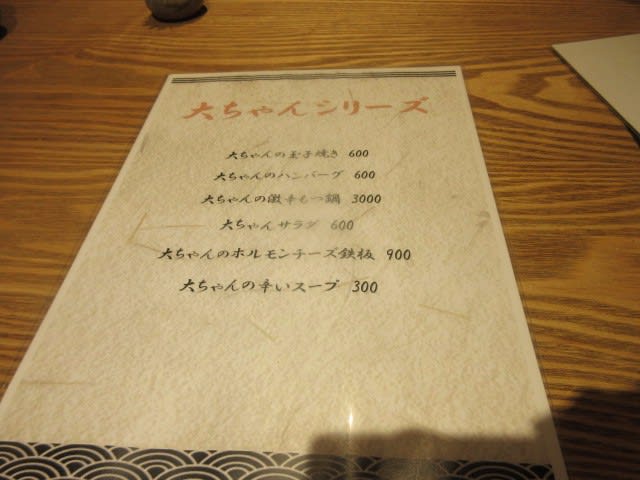 大ちゃんシリーズ
大ちゃんの玉子焼き 600
大ちゃんのハンバーグ 600
大ちゃんの激辛もつ鍋 3000
大ちゃんサラダ 600
大ちゃんのホルモンチーズ鉄板 900
大ちゃんの辛いスープ 300